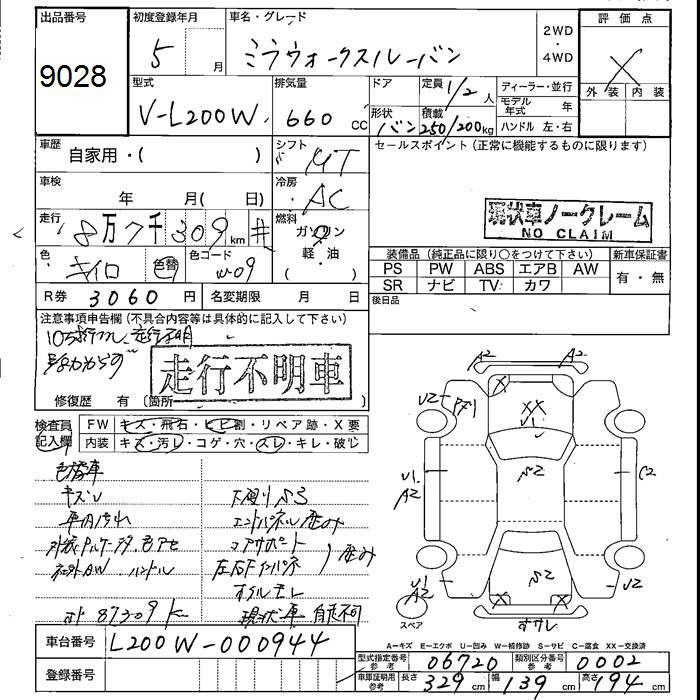 出品番号
9028
初度登録年月
5 月
車名・グレード
ミラウォークスルーバン
2WD
・
4WD
評価点
X
外装 内装
型式
V-L200W
排気量
660 CC
ドア
形状
バン
定員 1/2 人
積載 250/200kg
ディーラー・並行
モデル年式 年
ハンドル 左・右
車歴
自家用・( )
シフト
MT
セールスポイント (正常に機能するものに限ります)
車検
年 月( 日)
冷房
AC
現状車ノークレーム
NO CLAIM
走行
8万7千309km #
燃料
ガソリン
軽・油
( )
色
キイロ 色替
色コード
W-09
装備品 (純正品に限り○をつけて下さい)
新車保証書
PS PW ABS エアB AW
SR ナビ TV カワ
有・無
R券 3060 円
名変期限 月 日
後日品
注意事項申告欄 (不具合内容等は具体的に記入して下さい)
走行不明
走行不明車
修復歴 有 〔箇所
検査員記入欄
FW キズ・飛石・ヒビ割・リペア跡・X要
内装 キズ・汚レ・コゲ・穴・スレ・キレ・破じ
色替車
キズU
車内汚れ
社外AW ハンドル
87309K
下廻りS3
エンドパネル歪み
コアサポート
左右Fインパネ
歪み
オイルモレ
現状車 自走不可
A2 A2
X X
U2 XX U2
U1
U1 A2
S2
C2
U1 A2
S2
X X
スペア
すサレ
A=キズ E=エクボ U=凹み W=補修跡 S=サビ C=腐食 XX=交換済
車台番号 L200W-000944
登録番号
型式指定番号参考 06720
類別区分番号参考 0002
車庫証明用参考
長さ 329 cm
幅 139 cm
高さ 194 cm